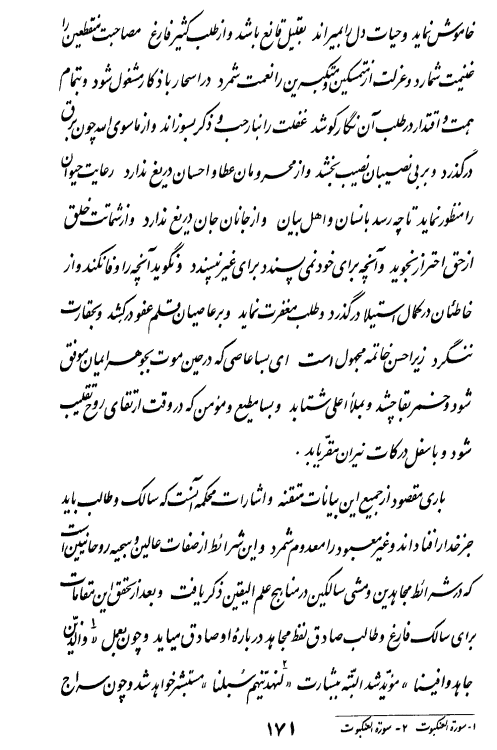 خاموش نماید و حیات دل را بمیراند بقلیل قانع باشد و از طلب کثیر فارغ مصاحبت منقطعین را
غنیمت شمارد و عزلت از متمسکین و متکبرین را نعمت شمرد در اسحار باذکار مشغول شود و بتمام
همت و اقتدار در طلب آن نگار کوشد غفلت را بنار حب و ذکر بسوزاند و از ماسوی الله چون برق
درگذرد و بر بی نصیبان نصیب بخشد و از محرومان عطا و احسان دریغ ندارد رعایت حیوان
را منظور نماید تا چه رسد بانسان و اهل بیان و از جانان جان دریغ ندارد و از شماتت خلق
از حق احتراز نجوید و آنچه برای خود نمی پسندد برای غیر نپسندد و نگوید آنچه را وفا نکند و از
خاطئان در کمال استیلا درگذرد و طلب مغفرت نماید و بر عاصیان قلم عفو درکشد و بحقارت
ننگرد زیرا حسن خاتمه مجهول است ای بسا عاصی که در حین موت بجوهر ایمان موفق
شود و خمر بقا چشد و بملأ اعلی شتابد و بسا مطیع و مؤمن که در وقت ارتقای روح تقلیب
شود و باسفل درکات نیران مقر یابد .
باری مقصود از جمیع این بیانات متقنه و اشارات محکمه آنست که سالک و طالب باید
جز خدا را فنا داند و غیر معبود را معدوم شمرد و این شرائط از صفات عالین و سجیه روحانیین است
که در شرائط مجاهدین و مشی سالکین در مناهج علم الیقین ذکر یافت و بعد از تحقق این مقامات
برای سالک فارغ و طالب صادق لفظ مجاهد در باره او صادق میاید و چون بعمل « و الذین ۱
جاهدوا فینا » مؤید شد البته ببشارت « لنهدینهم سبلنا ۲ » مستبشر خواهد شد و چون سراج
۱- سورة العنکبوت ۲- سورة العنکبوت
۱۷۱